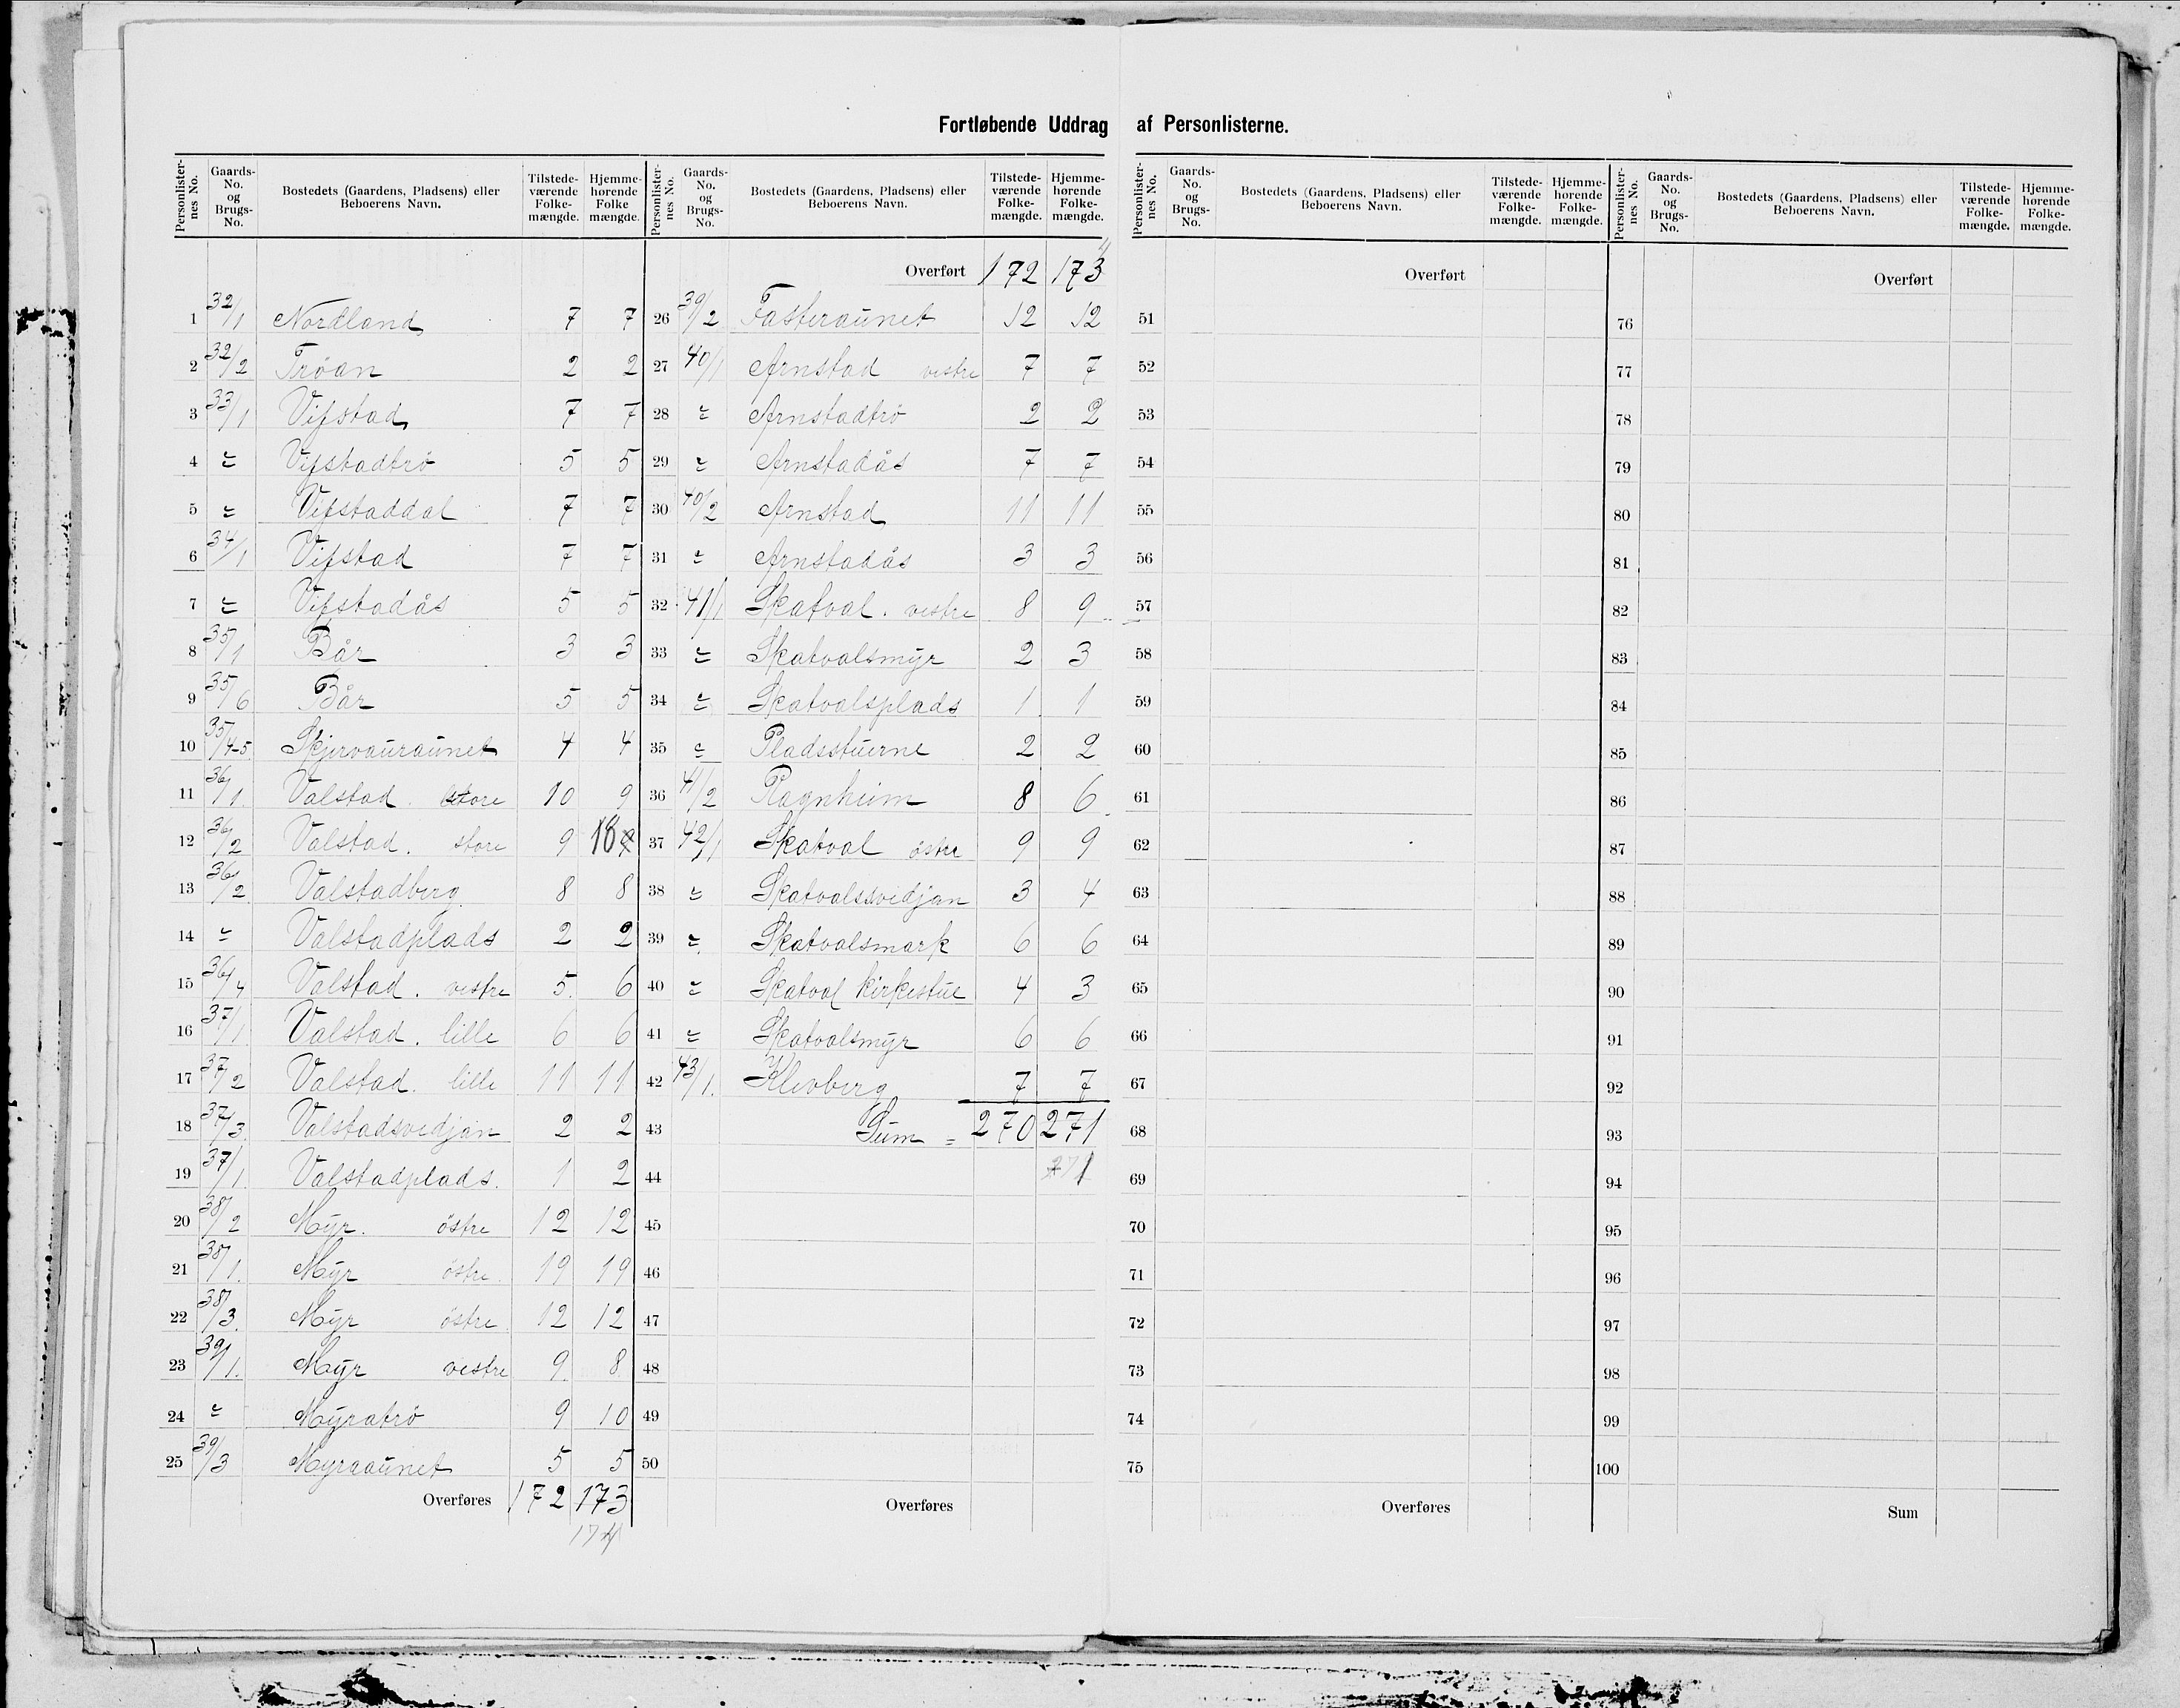 Fortløbende Uddrag af Personlisterne.
Personlister-nes No. Gaards-No. og Brugs-No. Bostedets (Gaardens, Pladsens) eller Beboerens Navn. Tilstede-værende Folke-mængde. Hjemme-hørende Folke mængde.
1 32/1 Nordland 7 7
2 32/2 Trøan 2 2
3 33/1 Vifstad 7 7
4 " Vifstadtrö 5 5
5 " Vifstaddal 7 7
6 34/1 Vifstad 7 7
7 " Vifstadås 5 5
8 35/1 Bår 3 3
9 35/6 Bår 5 5
10 35/4-5 Skjervauraunet 4 4
11 36/1 Valstad. store 10 9
12 36/2 Valstad. store 9 10
13 36/2 Valstadberg 8 8
14 " Valstadplads 2 2
15 36/4 Valstad. vestre 5 6
16 37/1 Valstad. lille 6 6
17 37/2 Valstad. lille 11 11
18 37/3 Valstadsvedjan 2 2
19 37/1 Valstadplads. 1 2
20 38/2 Myr. östre 12 12
21 38/1. Myr östre 19 19
22 38/3. Myr östre 12 12
23 39/1. Myr vestre 9 8
24 " Myratrö 9 10
25 39/3 Myraaunet 5 5
Overføres 172 173
174
Personlister-nes No. Gaards-No. og Brugs-No. Bostedets (Gaardens, Pladsens) eller Beboerens Navn. Tilstede-værende Folke-mængde. Hjemme-hørende Folke-mængde.
Overført 172 173
26 39/2 Fasteraunet 12 12
27 40/1 Arnstad vestre 7 7
28 " Arnstadtrö 2 2
29 " Arnstadås 7 7
30 40/2 Arnstad 11 11
31 " Arnstadås 3 3
32 41/1 Skatval. vestre 8 9
33 " Skatvalsmyr 2 3
34 " Skatvalsplads 1 1
35 " Pladsstuerne 2 2
36 41/2 Ragnheim 8 6
37 42/1 Skatval östre 9 9
38 " Skatvalssvedjan 3 4
39 " Skatvalsmark 6 6
40 " Skatval Kirkestue 4 3
41 " Skatvalsmyr 6 6
42 43/1. Klevberg 7 7
43 Sum = 270 271
44
45
46
47
48
49
50
Overføres
Personlister-nes No. Gaards-No. og Brugs-No. Bostedets (Gaardens, Pladsens) eller Beboerens Navn. Tilstede-værende Folke-mængde. Hjemme-hørende Folke-mængde.
Overført
51
52
53
54
55
56
57
58
59
60
61
62
63
64
65
66
67
68
69
70
71
72
73
74
75
Overføres
Personlister-nes No. Gaards-No. og Brugs-No. Bostedets (Gaardens, Pladsens) eller Beboerens Navn. Tilstede-værende Folke-mængde. Hjemme-hørende Folke-mængde.
Overført
76
77
78
79
80
81
82
83
84
85
86
87
88
89
90
91
92
93
94
95
96
97
98
99
100
Sum